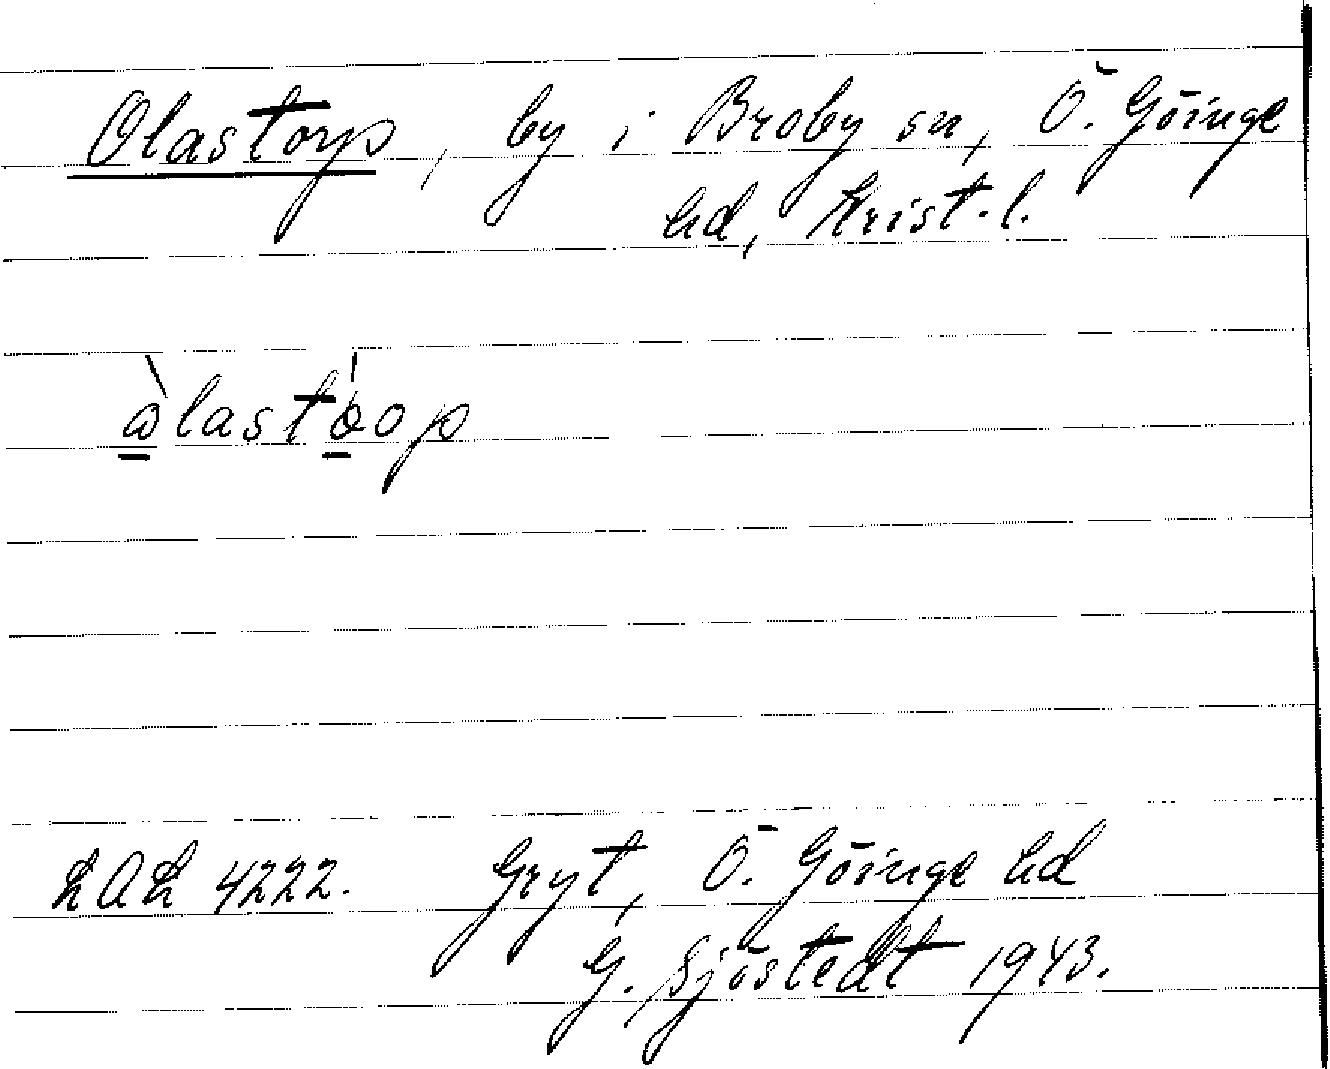 Olastorp, by i Broby sn, Ö. Göinge
hd, Krist. l.
òlastóop
LAL 4222. Gryt, Ö. Göinge hd
G. Sjöstedt 1943.